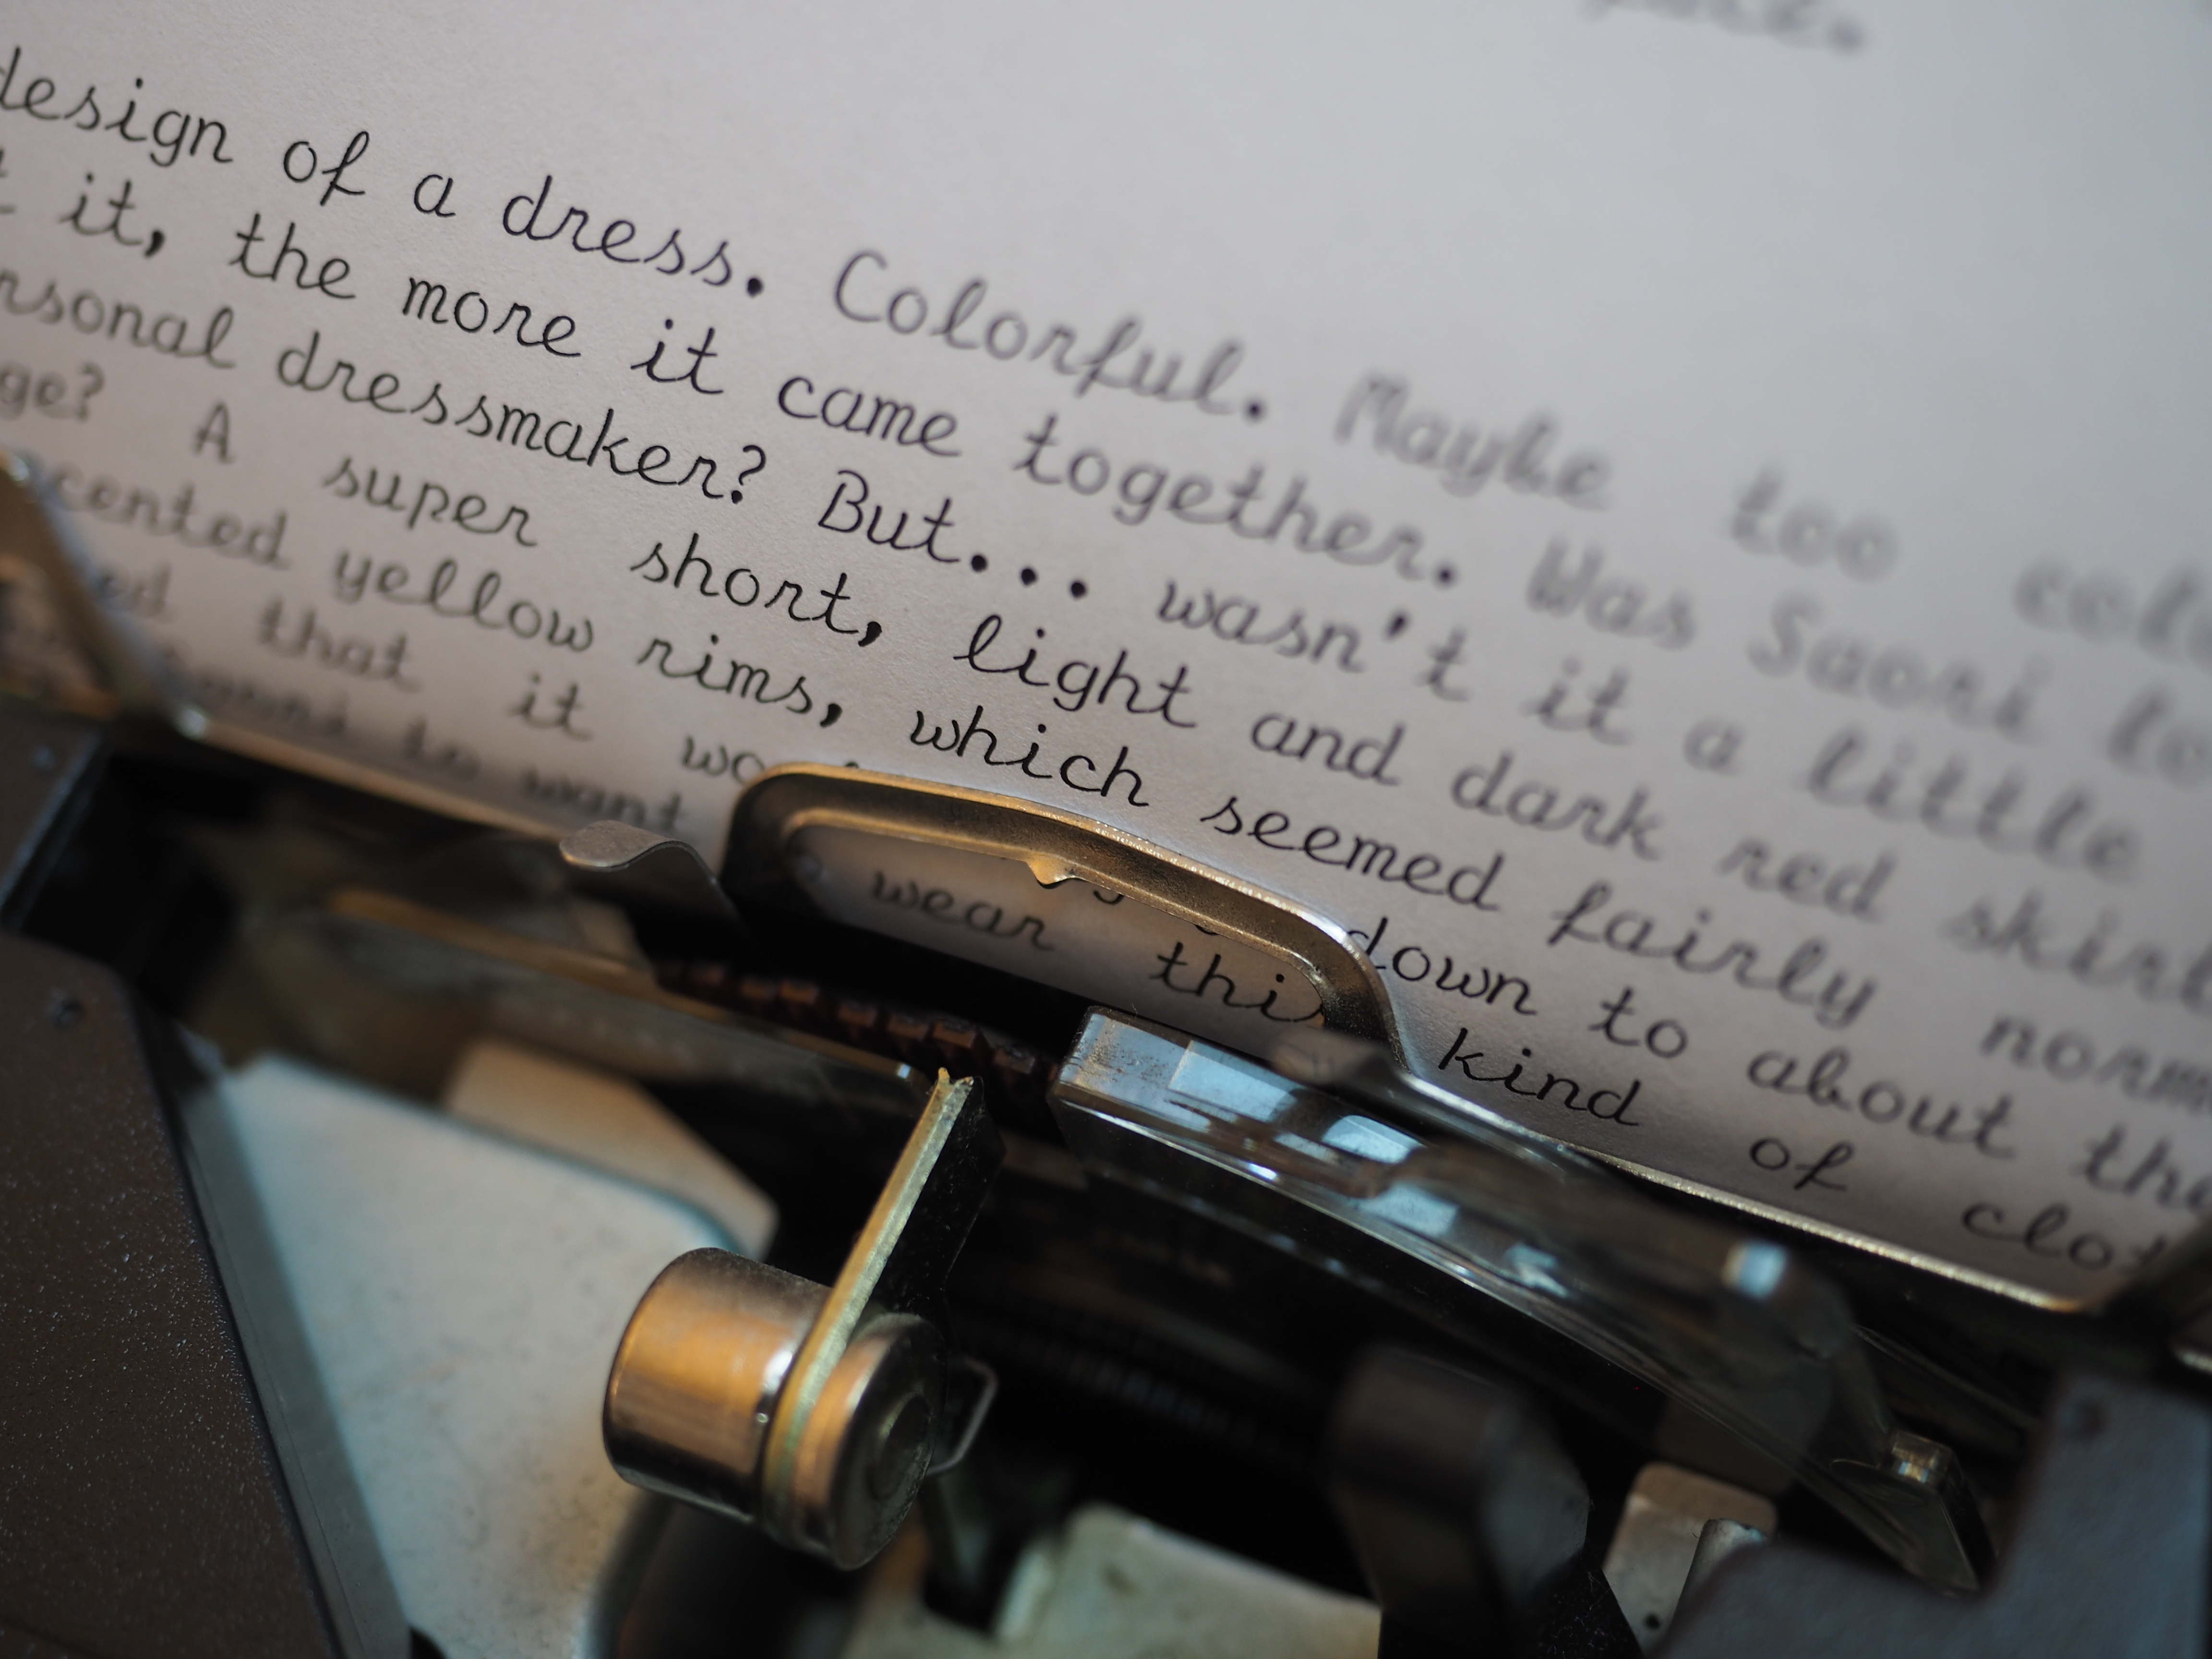 design of a dress. Colorful. Maybe too colo
it, the more it came together. Was Saori to
rsonal dressmaker? But... wasn't it a little
ge? A super short, light and dark red skirt
cented yellow rims, which seemed fairly norma
ed that it wo down to about the
to want wear this kind of clot